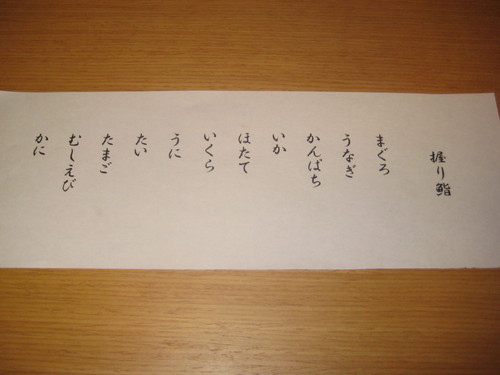 握り鮨
まぐろ
うなぎ
かんぱち
いか
ほたて
いくら
うに
たい
たまご
むしえび
かに